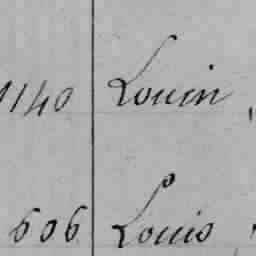 1140 Louin,
606 Louis,